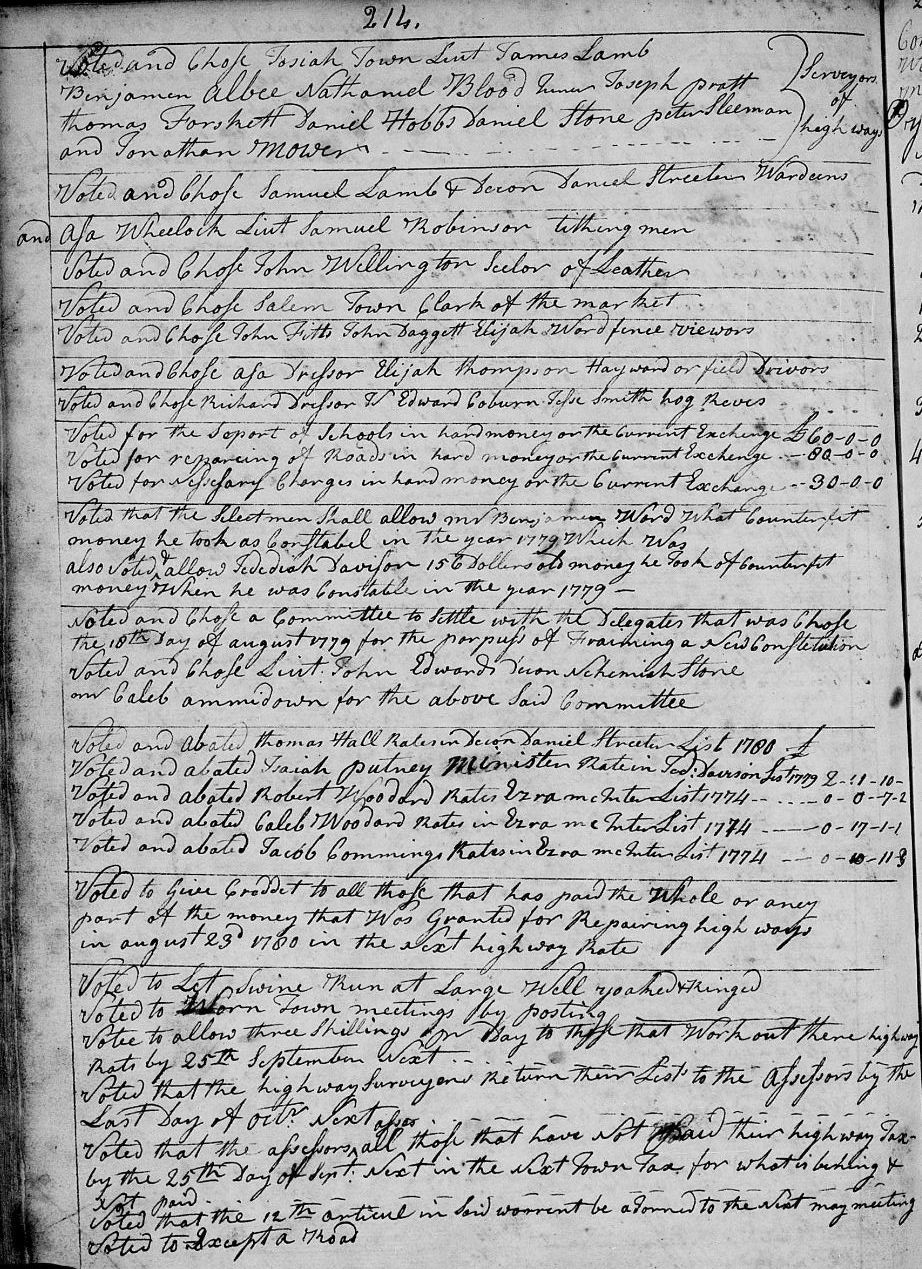 214.
Voted and Chose Josiah Town Liut James Lamb
Benjamen Albee Nathaniel Blood Juner Joseph pratt
thomas Forskett Daniel Hobbs Daniel Stone peter Sleeman
and Jonathan Mower
Serveyors
of
high ways
Voted and Chose Samuel Lamb & Decon Daniel Streeter Wardeens
and Asa Wheelock Liut Samuel Robinson tithingmen
Voted and Chose John Wellington Seelor of Leather
Voted and Chose Salem Town Clark of the market
Voted and Chose John Fitts John Daggett Elijah Word fence viewors
Voted and Chose asa Dressor Elijah thompson Hayward or field Drivors
Voted and Chose Richard Dressor Edward Coburn Jesse Smith hog Reves
Voted for the Seport of Schools in hard money or the Current Exchenge £60-0-0
Voted for reparcing of Roads in hard money or the Current Exchenge - 80-0-0
Voted for Nessesary Charges in hard money or the Current Exchange -- 30-0-0
Voted that the Select men Shall allow mr Benjamen Word What Counterfit
money he took as Constabel in the year 1779 Which Was
also Voted & allow Jedediah Davison 156 Dollers old money he Took of Counterfit
money When he was Constable in the year 1779 —
Voted and Chose a Committee to Settle with the Delegates that was Chose
the 18th Day of august 1779 for the porpuss of Fraiming a New Constetution
Voted and Chose Liut John Edwards Decon Nehemiah Stone
mr Caleb ammidown for the above Said Committee
Voted and abated thomas Hall Rates in Decon Daniel Streeter List 1780 £
Voted and abated Isaiah putney Minister Rate in Jed: Davison List 1779 2-11-10-
Voted and abated Robert Woodard Rates Ezra mcInter List 1774 -- 0-0-7-2
Voted and abated Caleb Woodard Rates in Ezra mcInter List 1774 — 0-17-1-1
Voted and abated Jacob Commings Rates in Ezra mcInter List 1774 — 0-10-11-3
Voted to Give Creddet to all those that has paid the Whole or aney
part of the money that Was Granted for Repairing high ways
in august 23d 1780 in the Next high way Rate
Voted to Let Swine Run at Large Well yoahed & Ringed
Voted to Worn Town meetings by posting
Votee to allow three Shillings pr Day to those that Work out there highway
Rats by 25th September Next
Voted that the high way Surveyers Return their List to the Assessors by the
Last Day of Octr Next
Voted that the assessors asses all those that have Not Paid their high way Tax
by the 25th Day of Sept. Next in the Next Town Tax for what is behing &
Not paid
Voted that the 12th articul in Said worrent be adorned to the Next may meeting
Voted to Except a Road